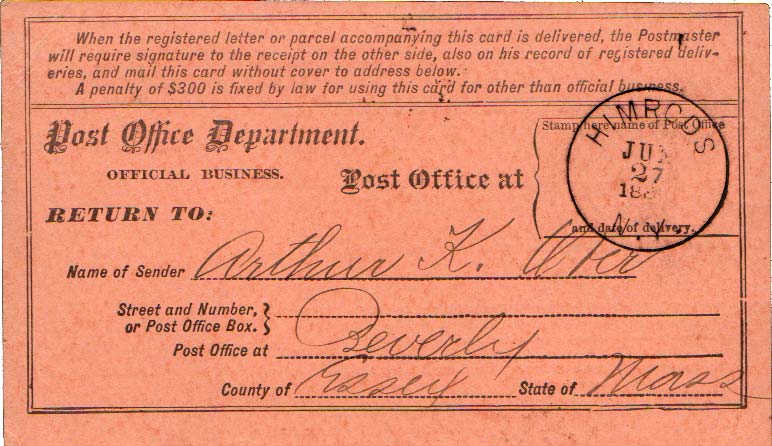 When the registered letter or parcel accompanying this card is delivered, the Postmaster
will require signature to the receipt on the other side, also on his record of registered deliv-
eries, and mail this card without cover to address below.
A penalty of $300 is fixed by law for using this card for other than official business.
Post Office Department.
OFFICIAL BUSINESS.
Post Office at
Stamp here name of Post Office
HIMRODS
27
N.Y.
and date of delivery.
RETURN TO:
Name of Sender Arthur K.
Street and Number,
or Post Office Box.
Post Office at Beverly
County of Essex State of Mass